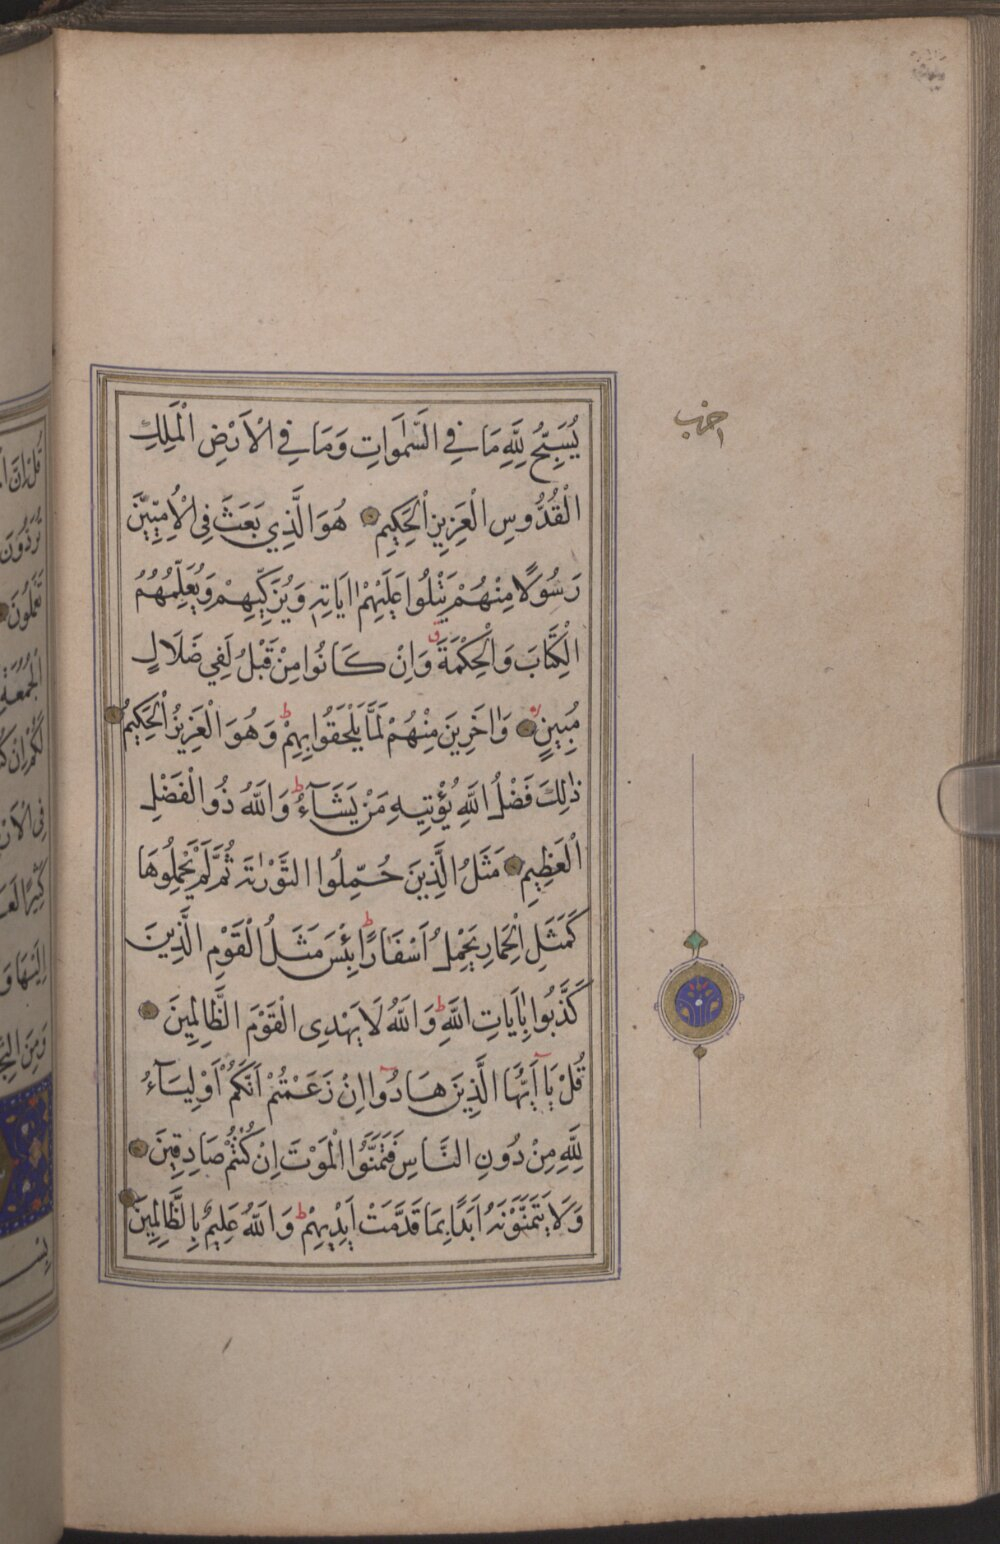 يُسَبِّحُ لِلّٰهِ مَا فِي السَّمٰوَاتِ وَمَا فِي الْاَرْضِ الْمَلِكِ
الْقُدُّوسِ الْعَزِيزِ الْحَكِيمِ هُوَ الَّذِي بَعَثَ فِي الْاُمِّيِّينَ
رَسُولًا مِنْهُمْ يَتْلُوا عَلَيْهِمْ اٰيَاتِهِ وَيُزَكِّيهِمْ وَيُعَلِّمُهُمُ
الْكِتَابَ وَالْحِكْمَةَ ق وَاِنْ كَانُوا مِنْ قَبْلُ لَفِي ضَلَالٍ
مُبِينٍ وَاٰخَرِينَ مِنْهُمْ لَمَّا يَلْحَقُوا بِهِمْ ط وَهُوَ الْعَزِيزُ الْحَكِيمُ
ذٰلِكَ فَضْلُ اللّٰهِ يُؤْتِيهِ مَنْ يَشَآءُ ط وَاللّٰهُ ذُو الْفَضْلِ
الْعَظِيمِ مَثَلُ الَّذِينَ حُمِّلُوا التَّوْرٰيةَ ثُمَّ لَمْ يَحْمِلُوهَا
كَمَثَلِ الْحِمَارِ يَحْمِلُ اَسْفَارًا ط بِئْسَ مَثَلُ الْقَوْمِ الَّذِينَ
كَذَّبُوا بِاٰيَاتِ اللّٰهِ ط وَاللّٰهُ لَا يَهْدِى الْقَوْمَ الظَّالِمِينَ
قُلْ يَآ اَيُّهَا الَّذِينَ هَادُوٓا اِنْ زَعَمْتُمْ اَنَّكُمْ اَوْلِيَآءُ
لِلّٰهِ مِنْ دُونِ النَّاسِ فَتَمَنَّوُا الْمَوْتَ اِنْ كُنْتُمْ صَادِقِينَ
وَلَا يَتَمَنَّوْنَهُ اَبَدًا بِمَا قَدَّمَتْ اَيْدِيهِمْ ط وَاللّٰهُ عَلِيمٌ بِالظَّالِمِينَ